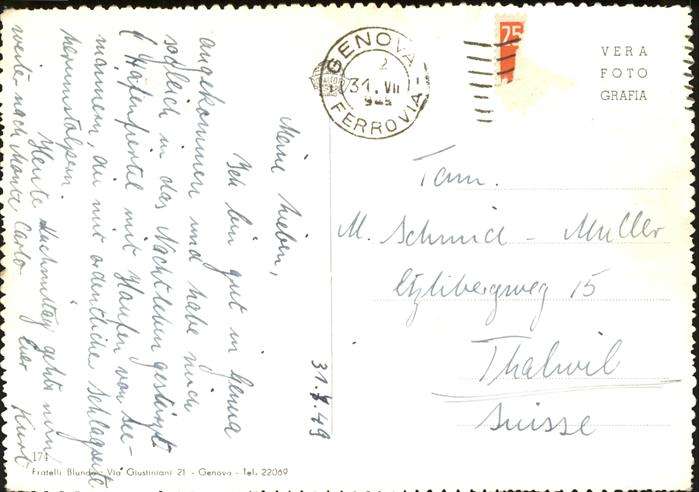 Meine Lieben,
Ich bin gut in Genua
angekommen und habe mich
sogleich in das Nachtleben gestürzt
(Hafenviertel mit Haufen von See-
männern, die mit ordentliche Schlagseite
herumstolpern
Heute Nachmittag gehts nun
weiter nach Monte Carlo Euer Kurt
31.7.49
GENOVA
FERROVIA
31. VII
25
VERA
FOTO
GRAFIA
Fam.
M. Schmid - Müller
Etzlibergweg 15
Thalwil
Suisse
174
Fratelli Blundo - Via Giustiniani 21 - Genova - Tel. 22069